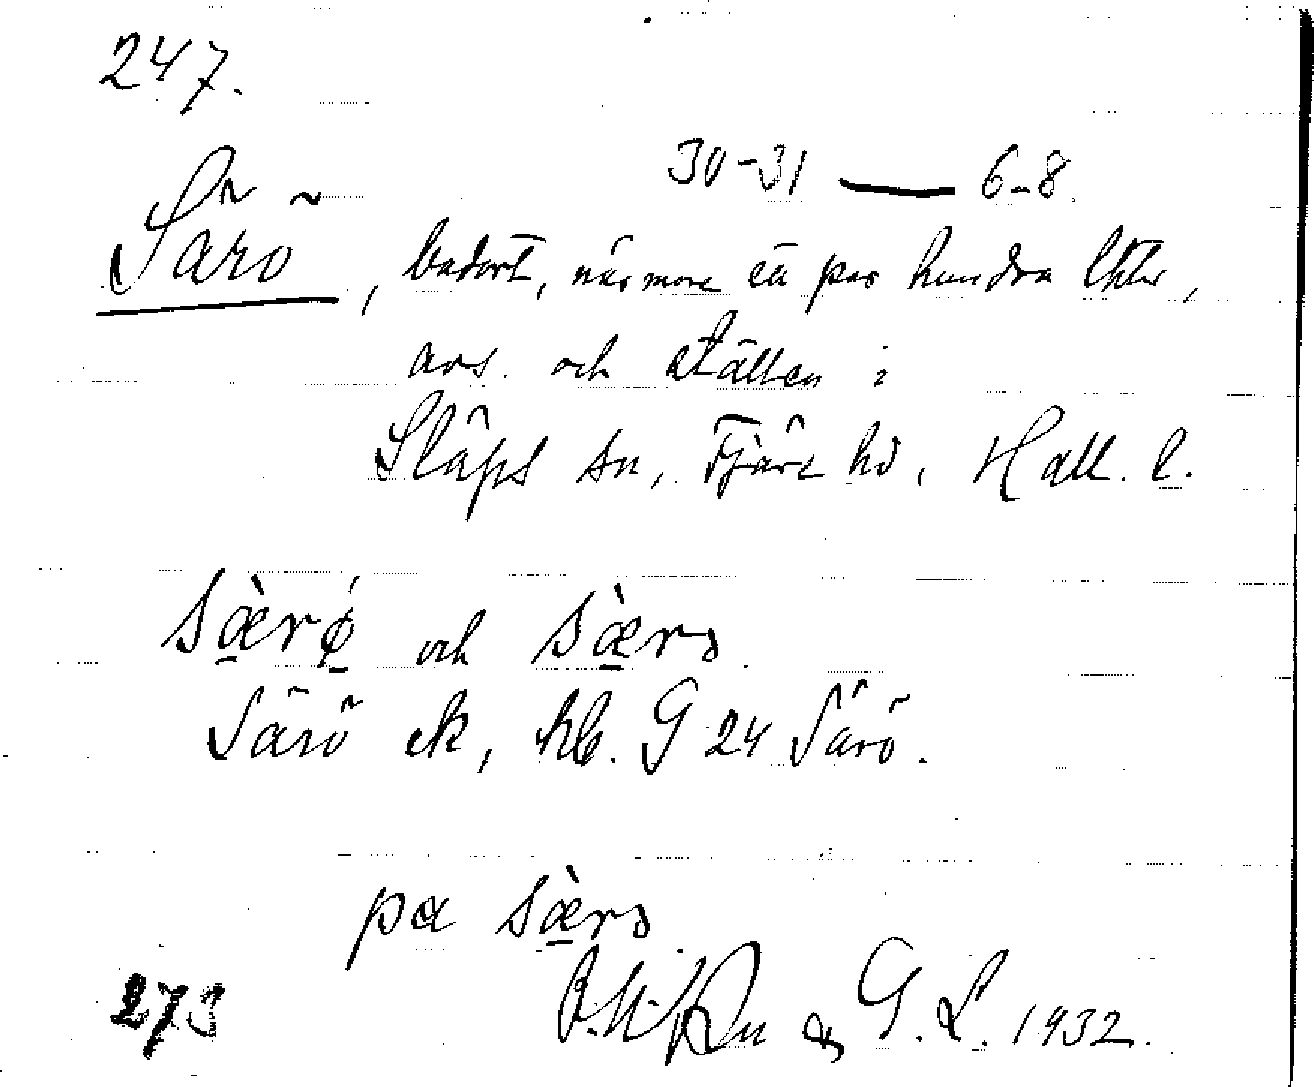 247.
30-31 — 6-8.
Särö, badort, närmare ett par hundra lhtr,
avs. och ställen i
Släps sn, Fjäre hd, Hall. l.
sæ̀rǿ och sæ̀rɔ.
Särö ek, kb. G 24 Särö.
pa sæ̀rɔ
& G. L. 1932.
273